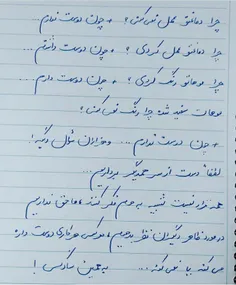 چرا دماغتو عمل نمی‌کنی؟ + چون دوست ندارم
چرا دماغتو عمل کردی؟ + چون دوست داشتم...
چرا موهاتو رنگ کردی؟ + چون دوست دارم...
موهات سفید شده چرا رنگ نمی‌کنی؟
+ چون دوست ندارم... و هزاران سوال دیگه!
لطفا دست از سر همدیگه برداریم...
همه قرار نیست شبیه به هم فکر کنند، ما حق نداریم
در مورد ظاهر دیگران نظر بدهیم، هر کس هر کاری دوست داره
می‌کند یا نمی‌کند... به همین سادگی!